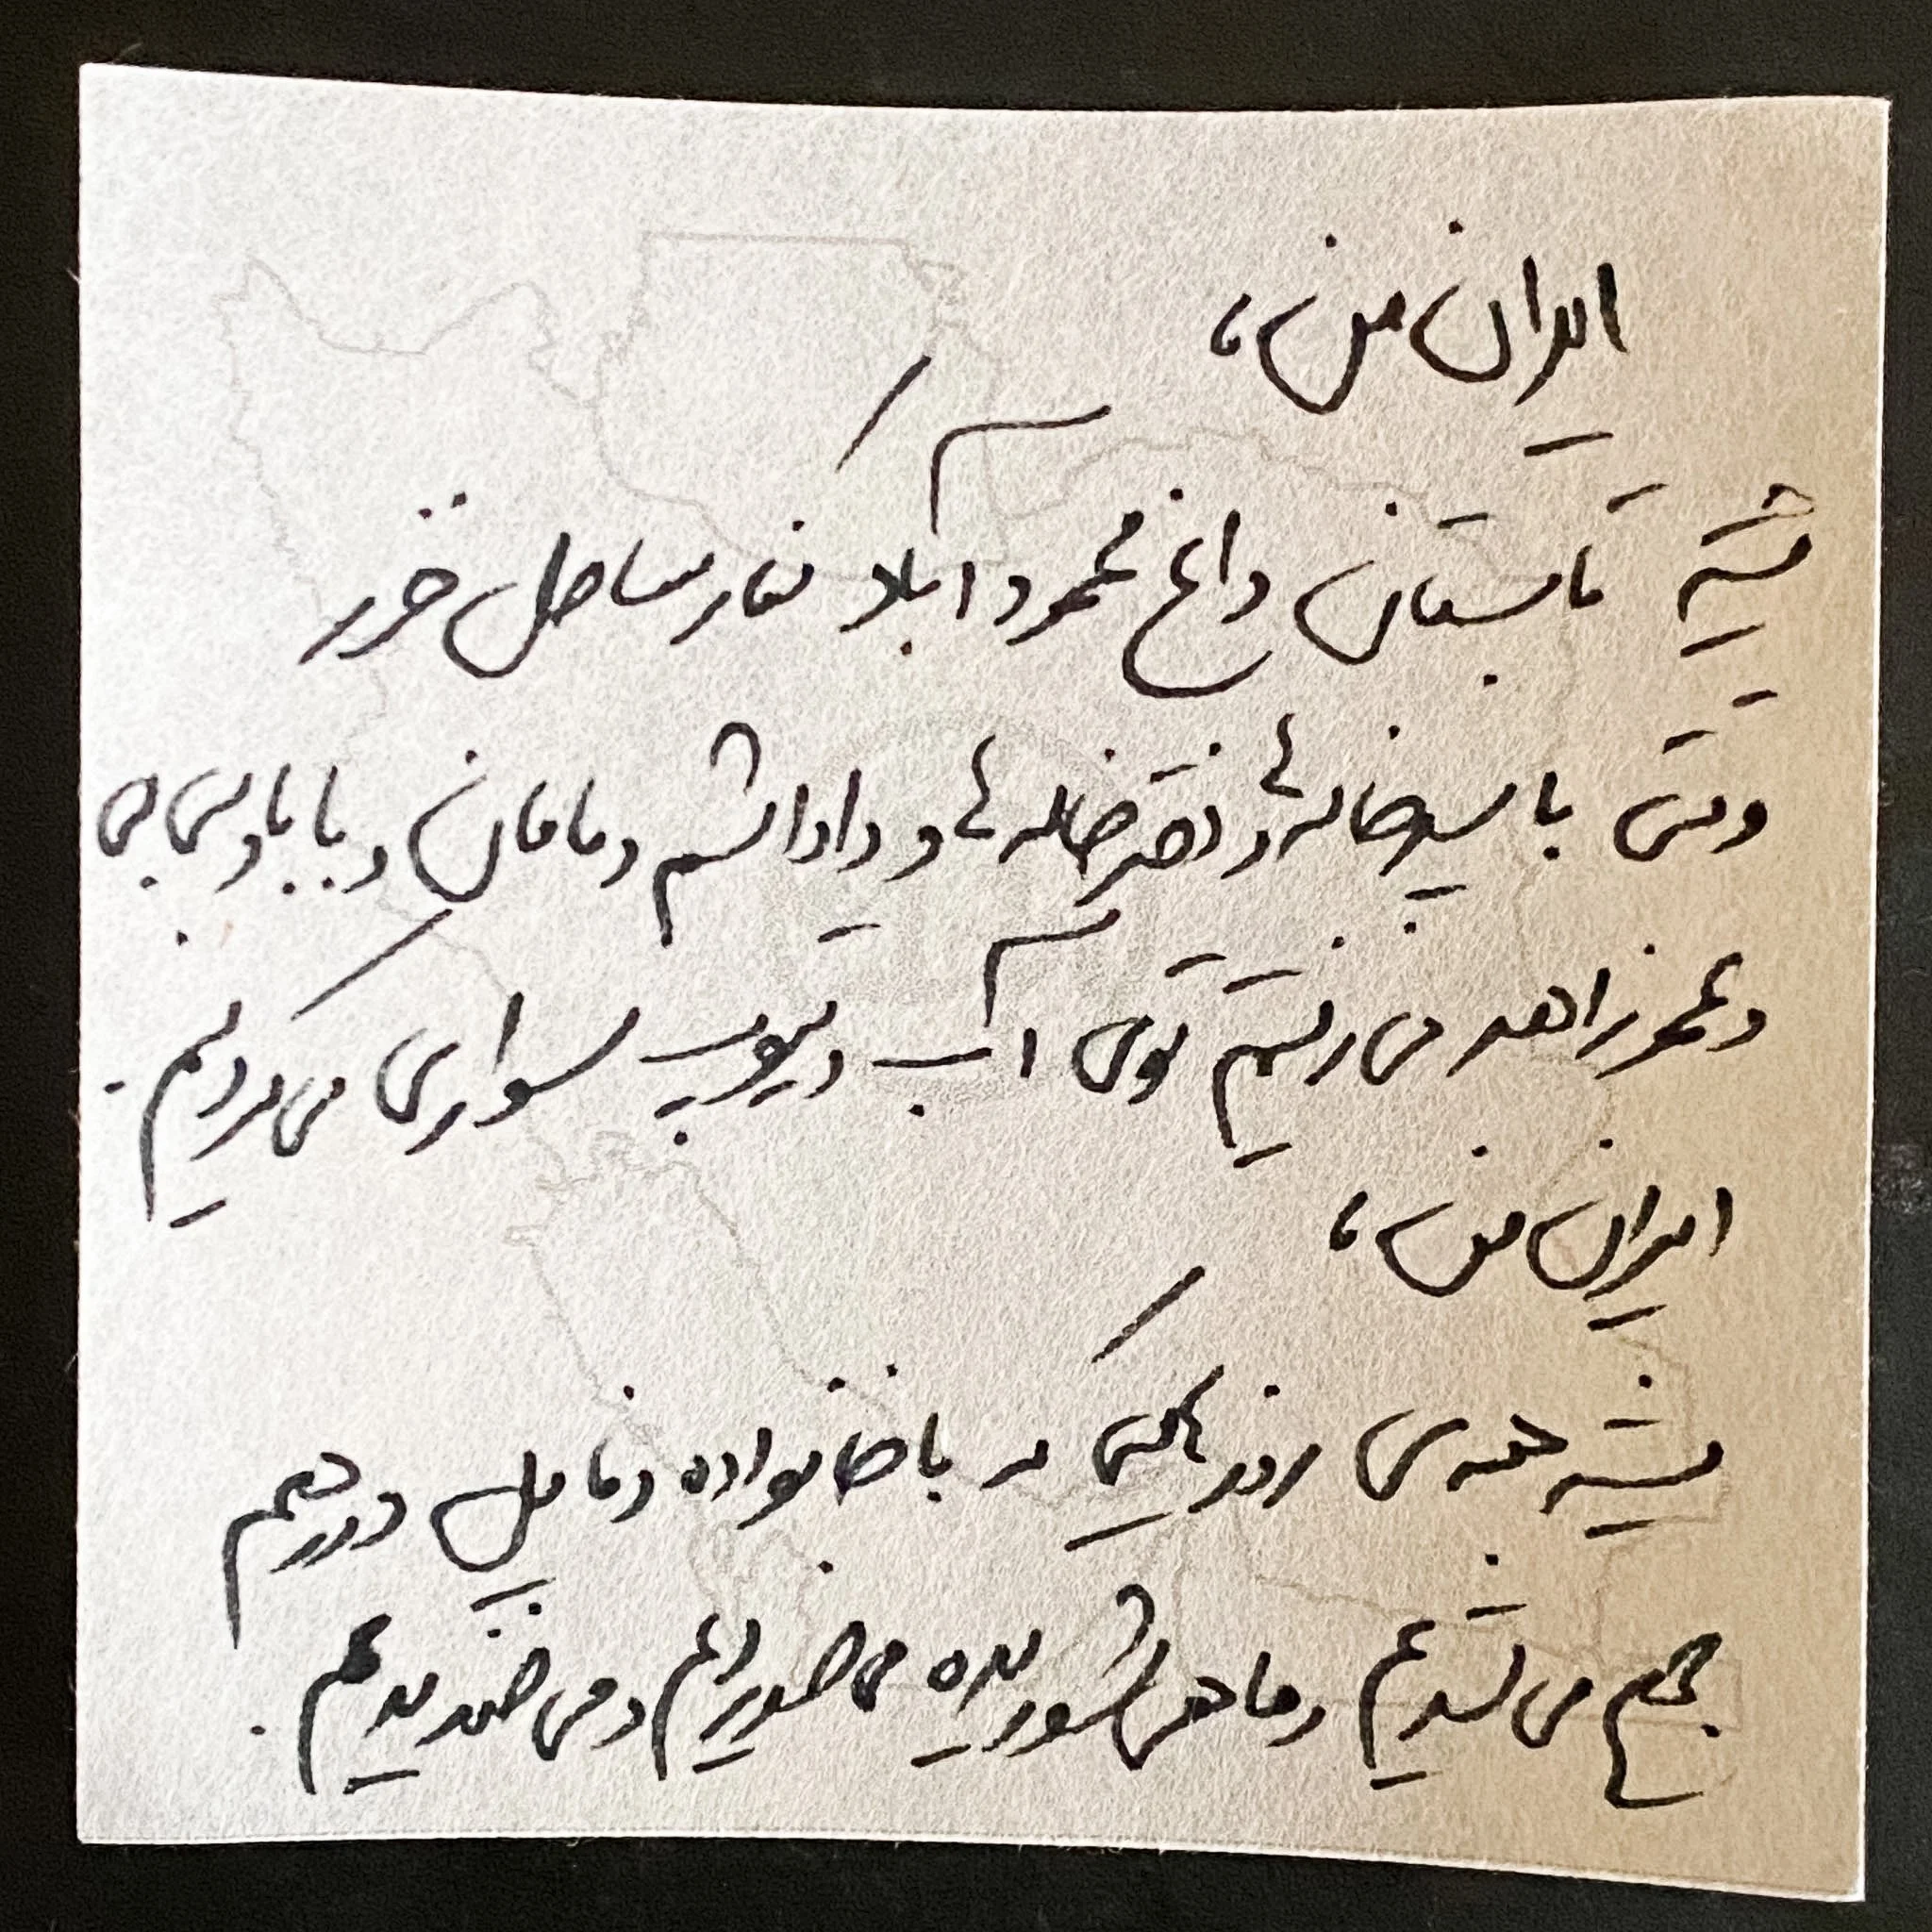 ایران من،
میشه تابستان داغ محمودآباد کنار ساحل خزر
وقتی با پسرخاله‌ها و دخترخاله‌ها و داداشم و مامان و بابا و بی‌بی
و عمو زاهد می‌رفتیم توی آب و تیوپ سواری می‌کردیم.
ایران من،
میشه همه‌ی روزهایی که با خانواده و فامیل دور هم
جمع می‌شدیم و ماهی شوریده می‌خوردیم و می‌خندیدیم.